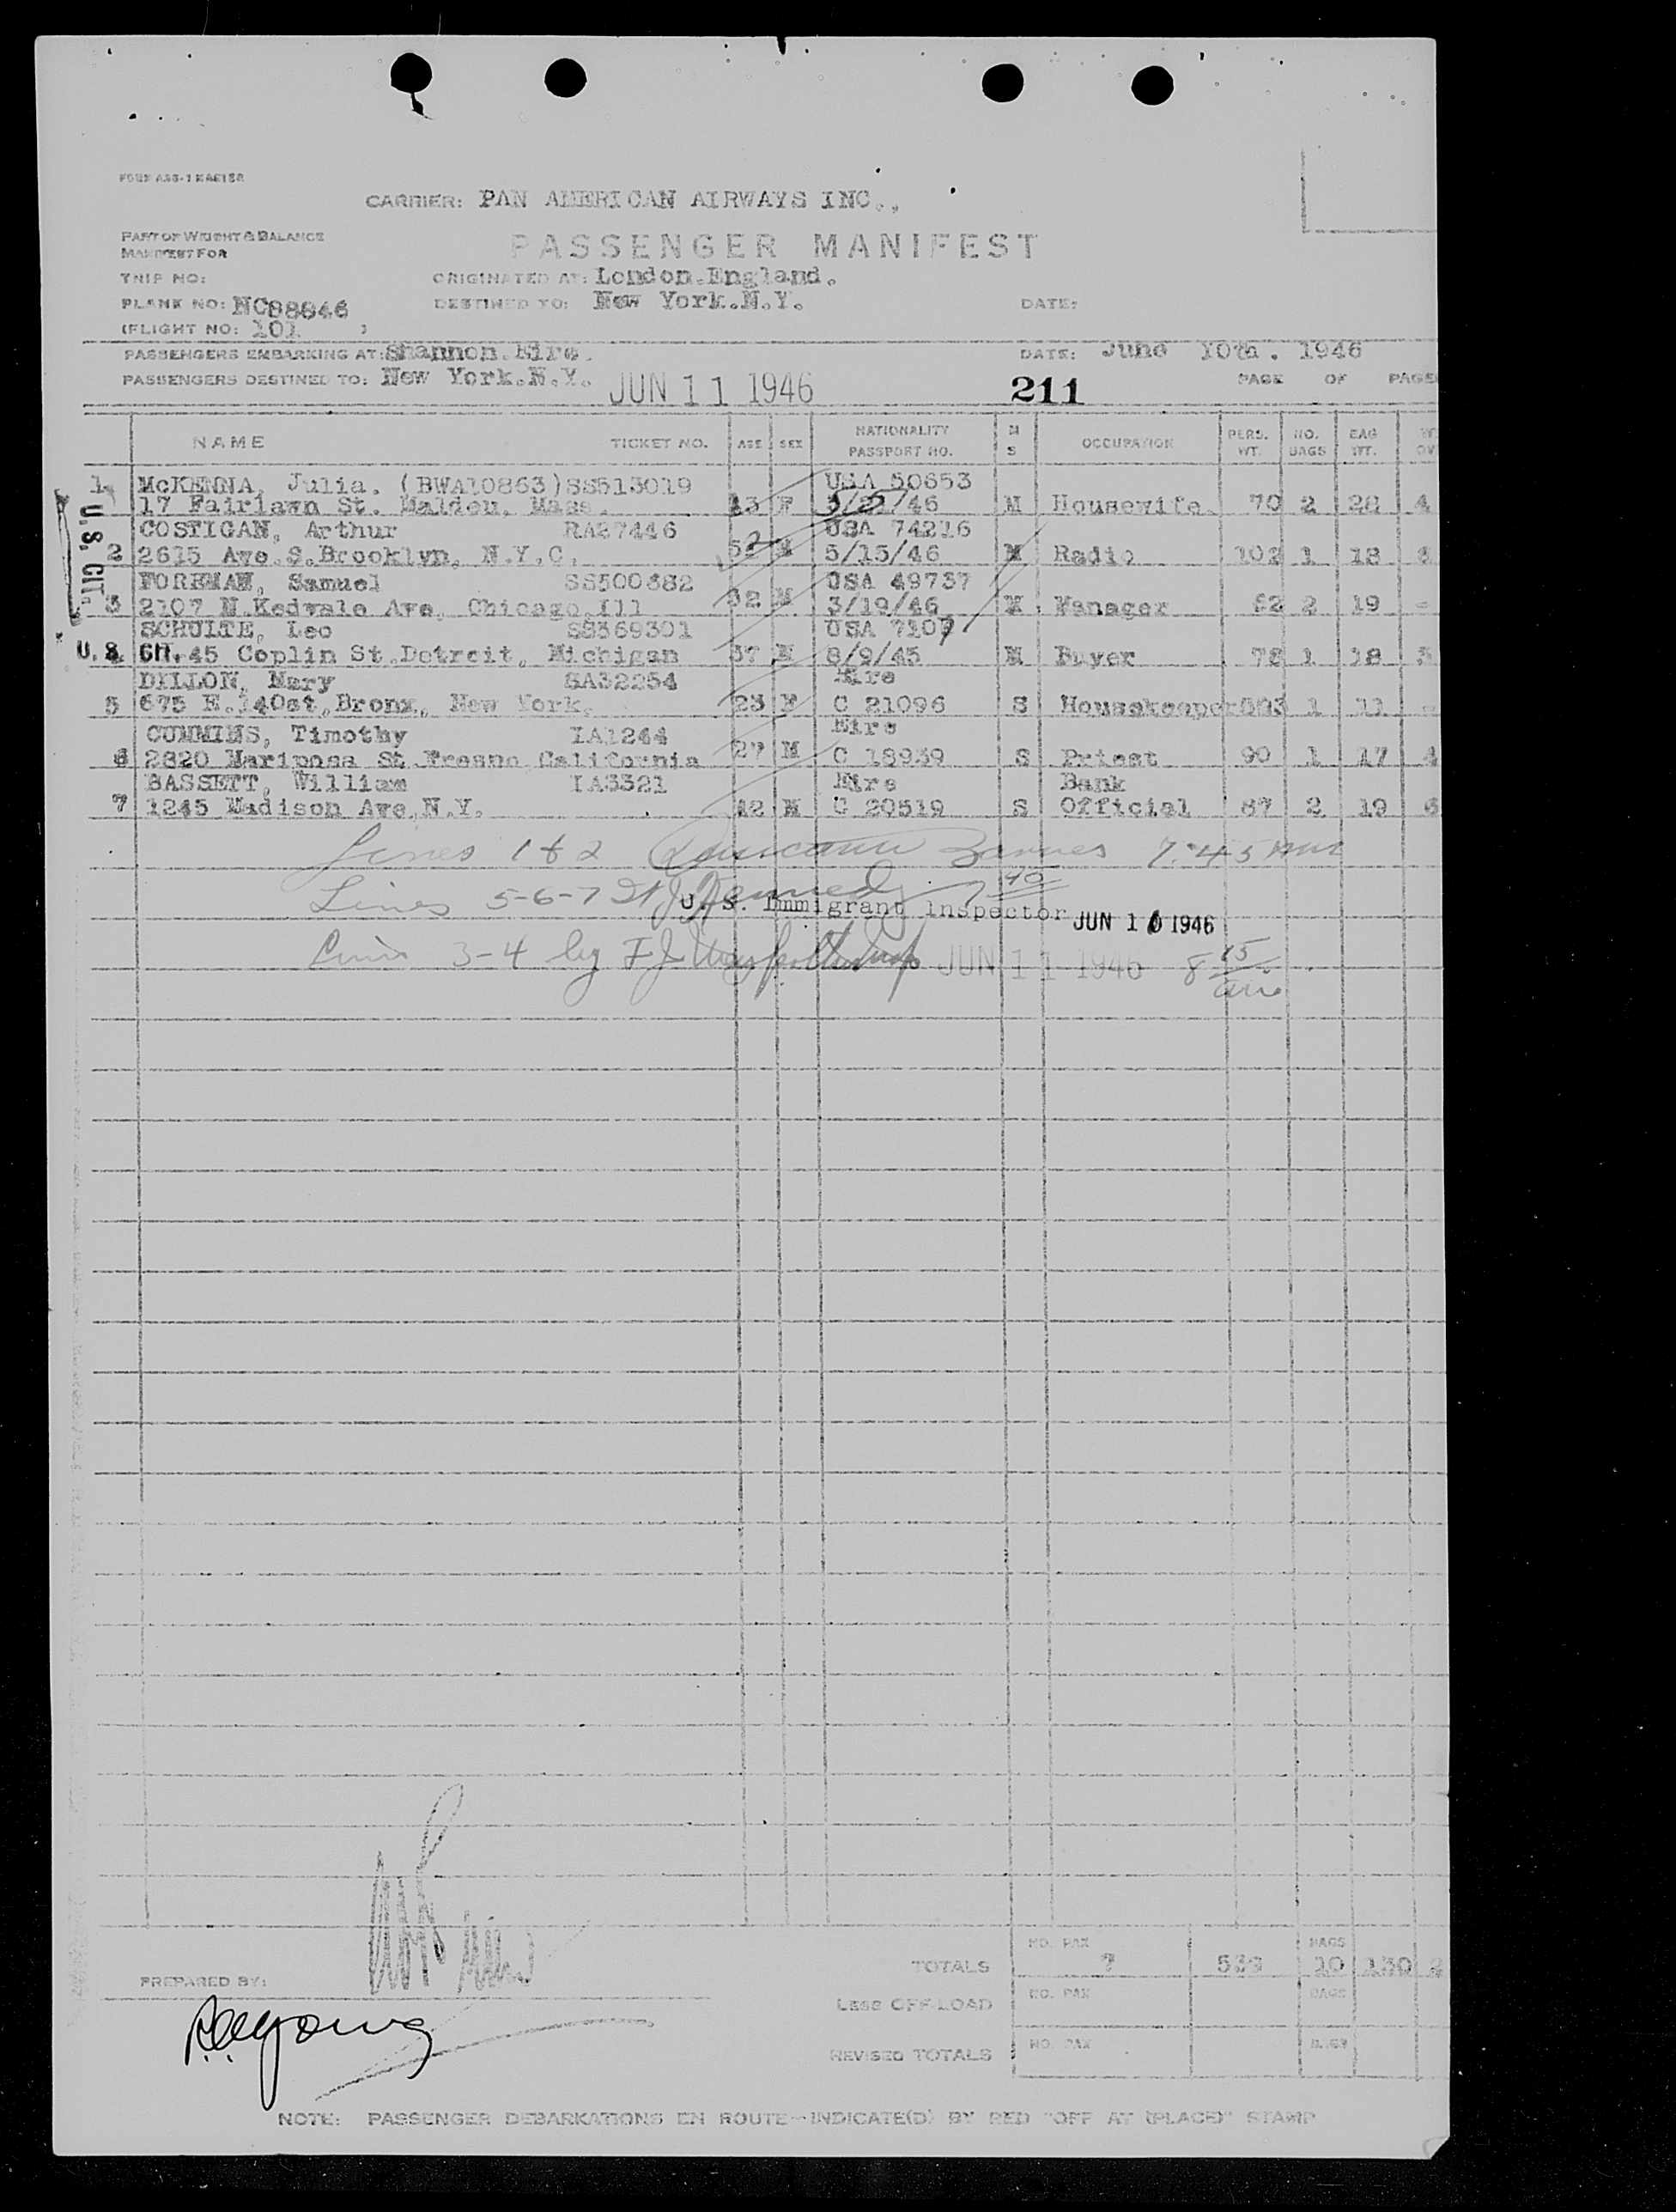 FORM ASB-1 MASTER
CARRIER: PAN AMERICAN AIRWAYS INC.,
PART OF WEIGHT & BALANCE
MANIFEST FOR
PASSENGER MANIFEST
TRIP NO:
ORIGINATED AT: London.England.
PLANE NO: NC88846
DESTINED TO: New York.N.Y.
DATE:
(FLIGHT NO: 101 )
PASSENGERS EMBARKING AT: Shannon.Eire.
DATE: June 10th. 1946
PASSENGERS DESTINED TO: New York.N.Y.
JUN 11 1946
211
PAGE OF PAGES
NAME TICKET NO. AGE SEX NATIONALITY PASSPORT NO. M S OCCUPATION PERS. WT. NO. BAGS BAG WT.
McKENNA, Julia. (BWA10863)SS513019 USA 50653
1 17 Fairlawn St. Malden, Mass. F 3/21/46 M Housewife 70 2 28 4
COSTIGAN, Arthur RA27446 USA 74216
2 2615 Ave.S.Brooklyn, N.Y.C. 52 M 5/15/46 M Radio 102 1 18
FOREMAN, Samuel SS500382 USA 49737
3 2107 N.Kedvale Ave, Chicago.Ill M 3/19/46 M Manager 2 19 -
SCHULTE, Leo SS369301 USA 7107
45 Coplin St.Detroit, Michigan 37 M 8/9/45 M Buyer 1 18
DILLON, Mary SA32254 Eire
5 675 E.140st,Bronx, New York. 23 F C 21096 S Housekeeper 1 11 -
CUMMINS, Timothy IA1244 Eire
6 2820 Mariposa St.Fresno California 27 M C 18939 S Priest 90 1 17 4
BASSETT, William IA3321 Eire Bank
7 1245 Madison Ave.N.Y. 42 M C 20519 S Official 87 2 19 6
U.S. CIT.
U.S. CIT.
Lines 1 & 2 Barnes 7:45 PM
Lines 5-6-7 Kennedy 7 40
U. S. Immigrant Inspector JUN 10 1946
Lines 3-4 by F J JUN 11 1946 8 15 am
PREPARED BY:
TOTALS NO. PAX 7 BAGS 10 130
LESS OFF-LOAD NO. PAX BAGS
REVISED TOTALS NO. PAX BAGS
NOTE: PASSENGER DEBARKATIONS EN ROUTE—INDICATE(D) BY RED "OFF AT (PLACE)" STAMP